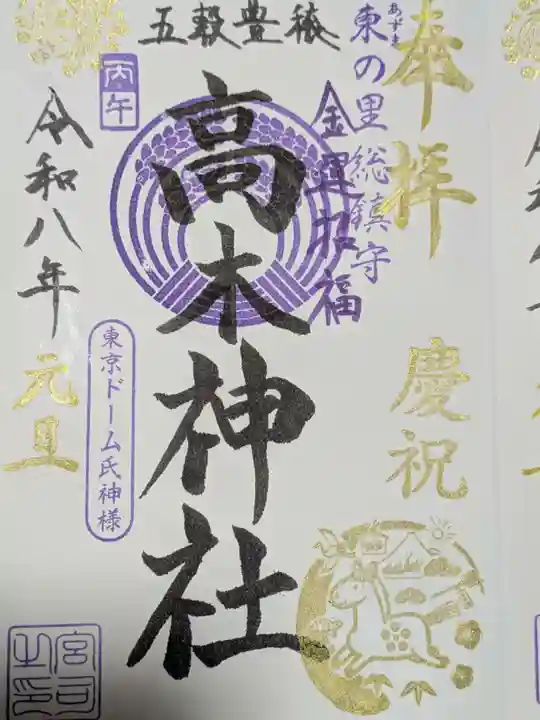 奉拝
慶祝
東の里総鎮守
あずま
金運招福
五穀豊穣
高木神社
丙午
東京ドーム氏神様
令和八年
元旦
宮司之印